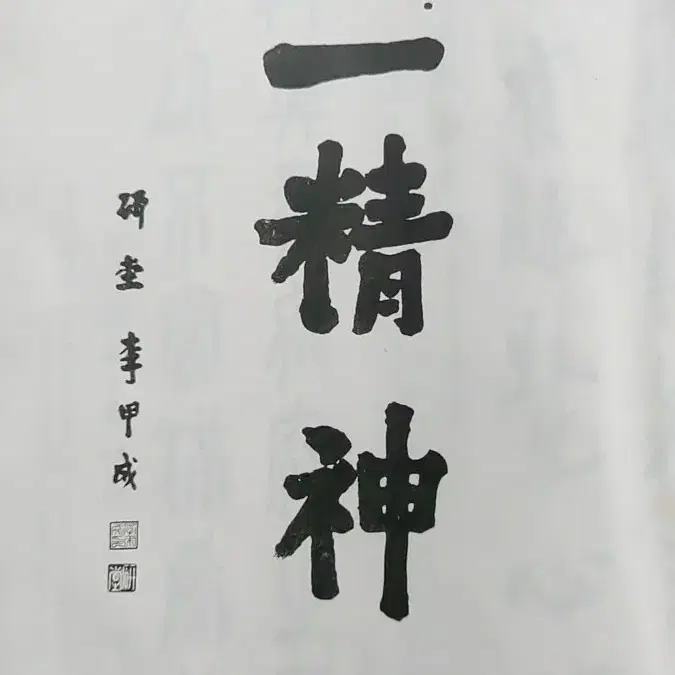 一精神
研堂 李甲成